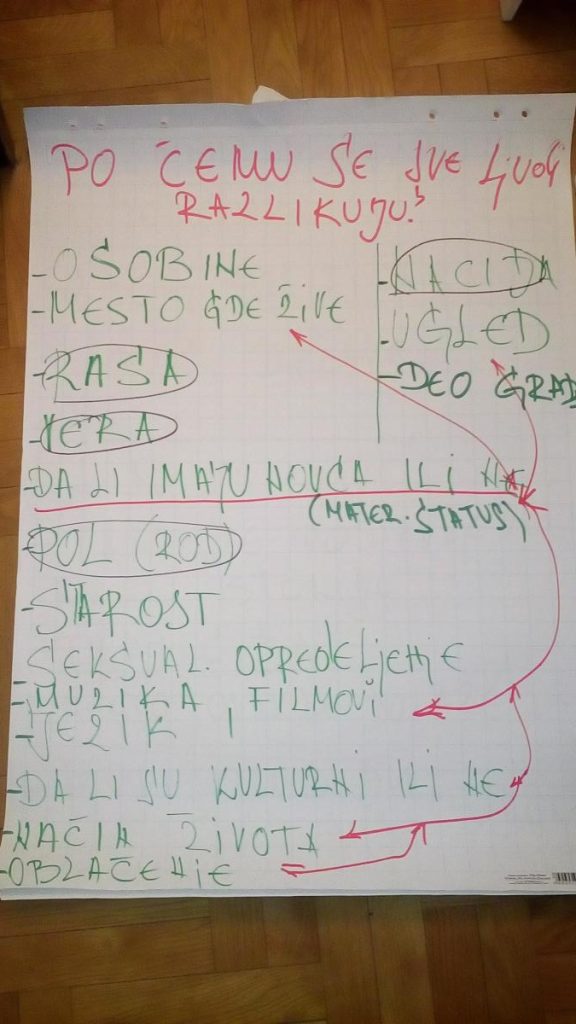 PO ČEMU SE SVE LJUDI
RAZLIKUJU?
-OSOBINE
-MESTO GDE ŽIVE
-RASA
-VERA
-DA LI IMAJU NOVCA ILI NE
(MATER. STATUS)
-POL (ROD)
-STAROST
-SEKSUAL. OPREDELJENJE
-MUZIKA, FILMOVI
-JEZIK
-DA LI SU KULTURNI ILI NE
-NAČIN ŽIVOTA
-OBLAČENJE
-NACIJA
-UGLED
-DEO GRAD